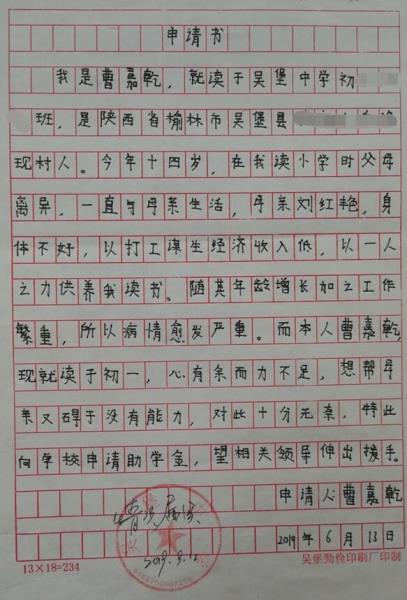 申请书
我是曹嘉乾，就读于吴堡中学初
班，是陕西省榆林市吴堡县
现村人。今年十四岁，在我读小学时父母
离异，一直与母亲生活，母亲刘红艳，身
体不好，以打工谋生经济收入低，以一人
之力供养我读书。随其年龄增长加之工作
繁重，所以病情愈发严重。而本人曹嘉乾，
现就读于初一，心有余而力不足，想帮母
亲又碍于没有能力，对此十分无奈，特此
向学校申请助学金，望相关领导伸出援手。
申请人曹嘉乾
情况属实
2019年6月13日
13×18=234
吴堡勤俭印刷厂印制